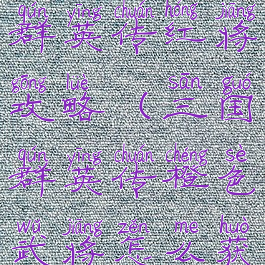 qún yīng chuán hóng jiàng
群英传红将
gōng lüè sān guó
攻略（三国
qún yīng chuán chéng sè
群英传橙色
wǔ jiàng zěn me huò
武将怎么获